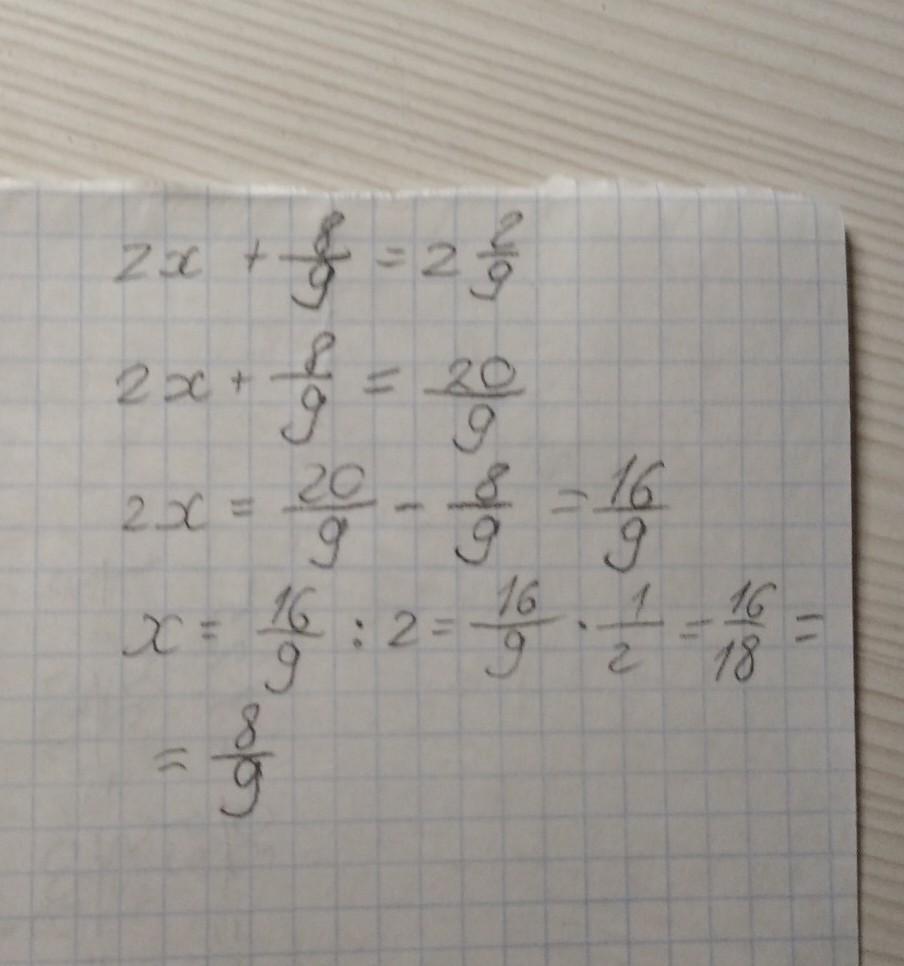 2x + 8/9 = 2 2/9
2x + 8/9 = 20/9
2x = 20/9 - 8/9 = 16/9
x = 16/9 : 2 = 16/9 · 1/2 = 16/18 =
= 8/9